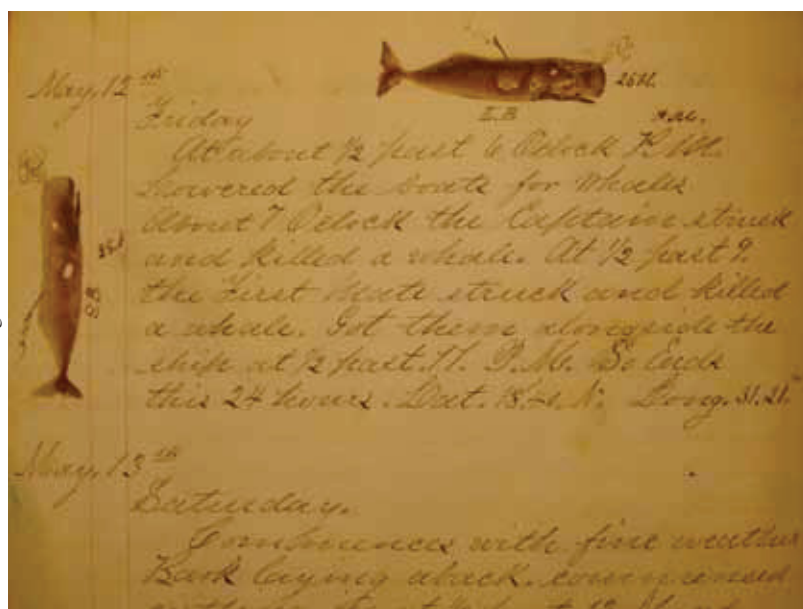 May, 12th
Friday
At about 1/2 past 6 Oclock P.M.
Lowered the boats for whales
About 7 Oclock the Captain struck
and killed a whale. At 1/2 past 9.
the First Mate struck and killed
a whale. Got them alongside the
ship at 1/2 past 11. P.M. So Ends
this 24 hours. Lat. N. Long. 31.21.
May, 13th
Saturday.
Commences with fine weather
Bark laying aback. commenced